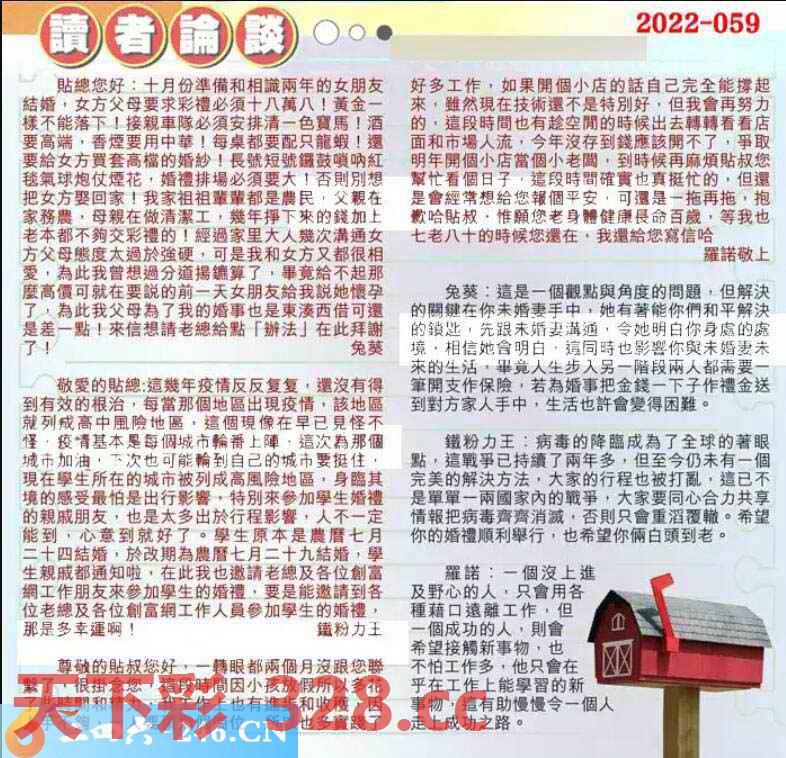 讀者論談
2022-059
貼總您好：十月份準備和相識兩年的女朋友
結婚，女方父母要求彩禮必須十八萬八！黃金一
樣不能落下！接親車隊必須安排清一色寶馬！酒
要高端，香煙要用中華！每桌都要配只龍蝦！還
要給女方買套高檔的婚紗！長號短號鑼鼓嗩吶紅
毯氣球炮仗煙花，婚禮排場必須要大！否則別想
把女方娶回家！我家祖祖輩輩都是農民，父親在
家務農，母親在做清潔工，幾年掙下來的錢加上
老本都不夠交彩禮的！經過家里大人幾次溝通女
方父母態度太過於強硬，可是我和女方又都很相
愛，為此我曾想過分道揚鑣算了，畢竟給不起那
麼高價可就在要說的前一天女朋友給我說她懷孕
了，為此我父母為了我的婚事也是東湊西借可還
是差一點！來信想請老總給點「辦法」在此拜謝
了！　兔葵
敬愛的貼總:這幾年疫情反反复复，還沒有得
到有效的根治，每當那個地區出現疫情，該地區
就列成高中風險地區，這個現像在早已見怪不
怪，疫情基本是每個城市輪番上陣，這次為那個
城市加油，下次也可能輪到自己的城市要挺住，
現在學生所在的城市被列成高風險地區，身臨其
境的感受最怕是出行影響，特別來參加學生婚禮
的親戚朋友，也是太多出於行程影響，人不一定
能到，心意到就好了。學生原本是農曆七月
二十四結婚，於改期為農曆七月二十九結婚，學
生親戚都通知啦，在此我也邀請老總及各位創富
網工作朋友來參加學生的婚禮，要是能邀請到各
位老總及各位創富網工作人員參加學生的婚禮，
那是多幸運啊！　鐵粉力王
尊敬的貼叔您好，一轉眼都兩個月沒跟您聯
繫了，很掛念您，這段時間因小孩放假所以多花
了 時間和 我工作上也有進步和收穫，因
所 也多實踐了
好多工作，如果開個小店的話自己完全能撐起
來，雖然現在技術還不是特別好，但我會再努力
的，這段時間也有趁空閒的時候出去轉轉看看店
面和市場人流，今年沒存到錢應該開不了，爭取
明年開個小店當個小老闆，到時候再麻煩貼叔您
幫忙看個日子，這段時間確實也真挺忙的，但還
是會經常想給您報個平安，可還是一拖再拖，抱
歉哈貼叔，惟願您老身體健康長命百歲，等我也
七老八十的時候您還在，我還給您寫信哈
羅諾敬上
兔葵：這是一個觀點與角度的問題，但解決
的關鍵在你未婚妻手中，她有著能你們和平解決
的鎖匙，先跟未婚妻溝通，令她明白你身處的處
境，相信她會明白，這同時也影響你與未婚妻未
來的生活，畢竟人生步入另一階段兩人都需要一
筆開支作保險，若為婚事把金錢一下子作禮金送
到對方家人手中，生活也許會變得困難。
鐵粉力王：病毒的降臨成為了全球的著眼
點，這戰爭已持續了兩年多，但至今仍未有一個
完美的解決方法，大家的行程也被打亂，這已不
是單單一兩國家內的戰爭，大家要同心合力共享
情報把病毒齊齊消滅，否則只會重滔覆轍。希望
你的婚禮順利舉行，也希望你倆白頭到老。
羅諾：一個沒上進
及野心的人，只會用各
種藉口遠離工作，但
一個成功的人，則會
希望接觸新事物，也
不怕工作多，他只會在
乎在工作上能學習的新
事物，這有助慢慢令一個人
走上成功之路。
天下彩 328.cc
二四六 246.CN